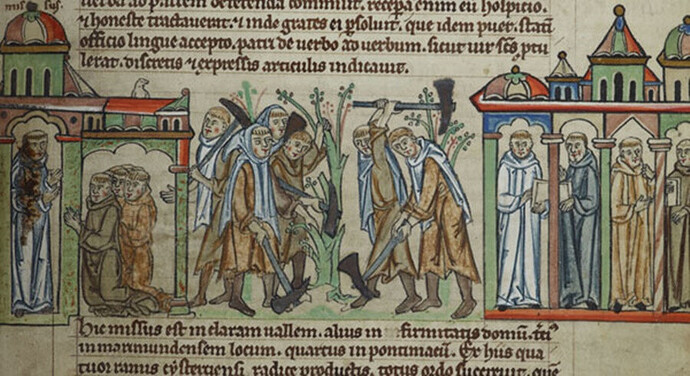 missus.
ad p... illi deferenda commisit. recepat enim eū hospicio.
⁊ honeste tractauerat. ⁊ inde grates ei psoluit. que idem puer. statī
officio lingue accepto. patri de uerbo ad uerbum. sicut uir scs ptu
lerat. discretis ⁊ expressis articulis indicauit.
Hic missus est in claram uallem. alius in firmitatis domū. tci
in marimundensem locum. quartus in pontimacū. Ex hiis qua
tuor ramus cysterciensi radice productis. totus ordo succreuit. que